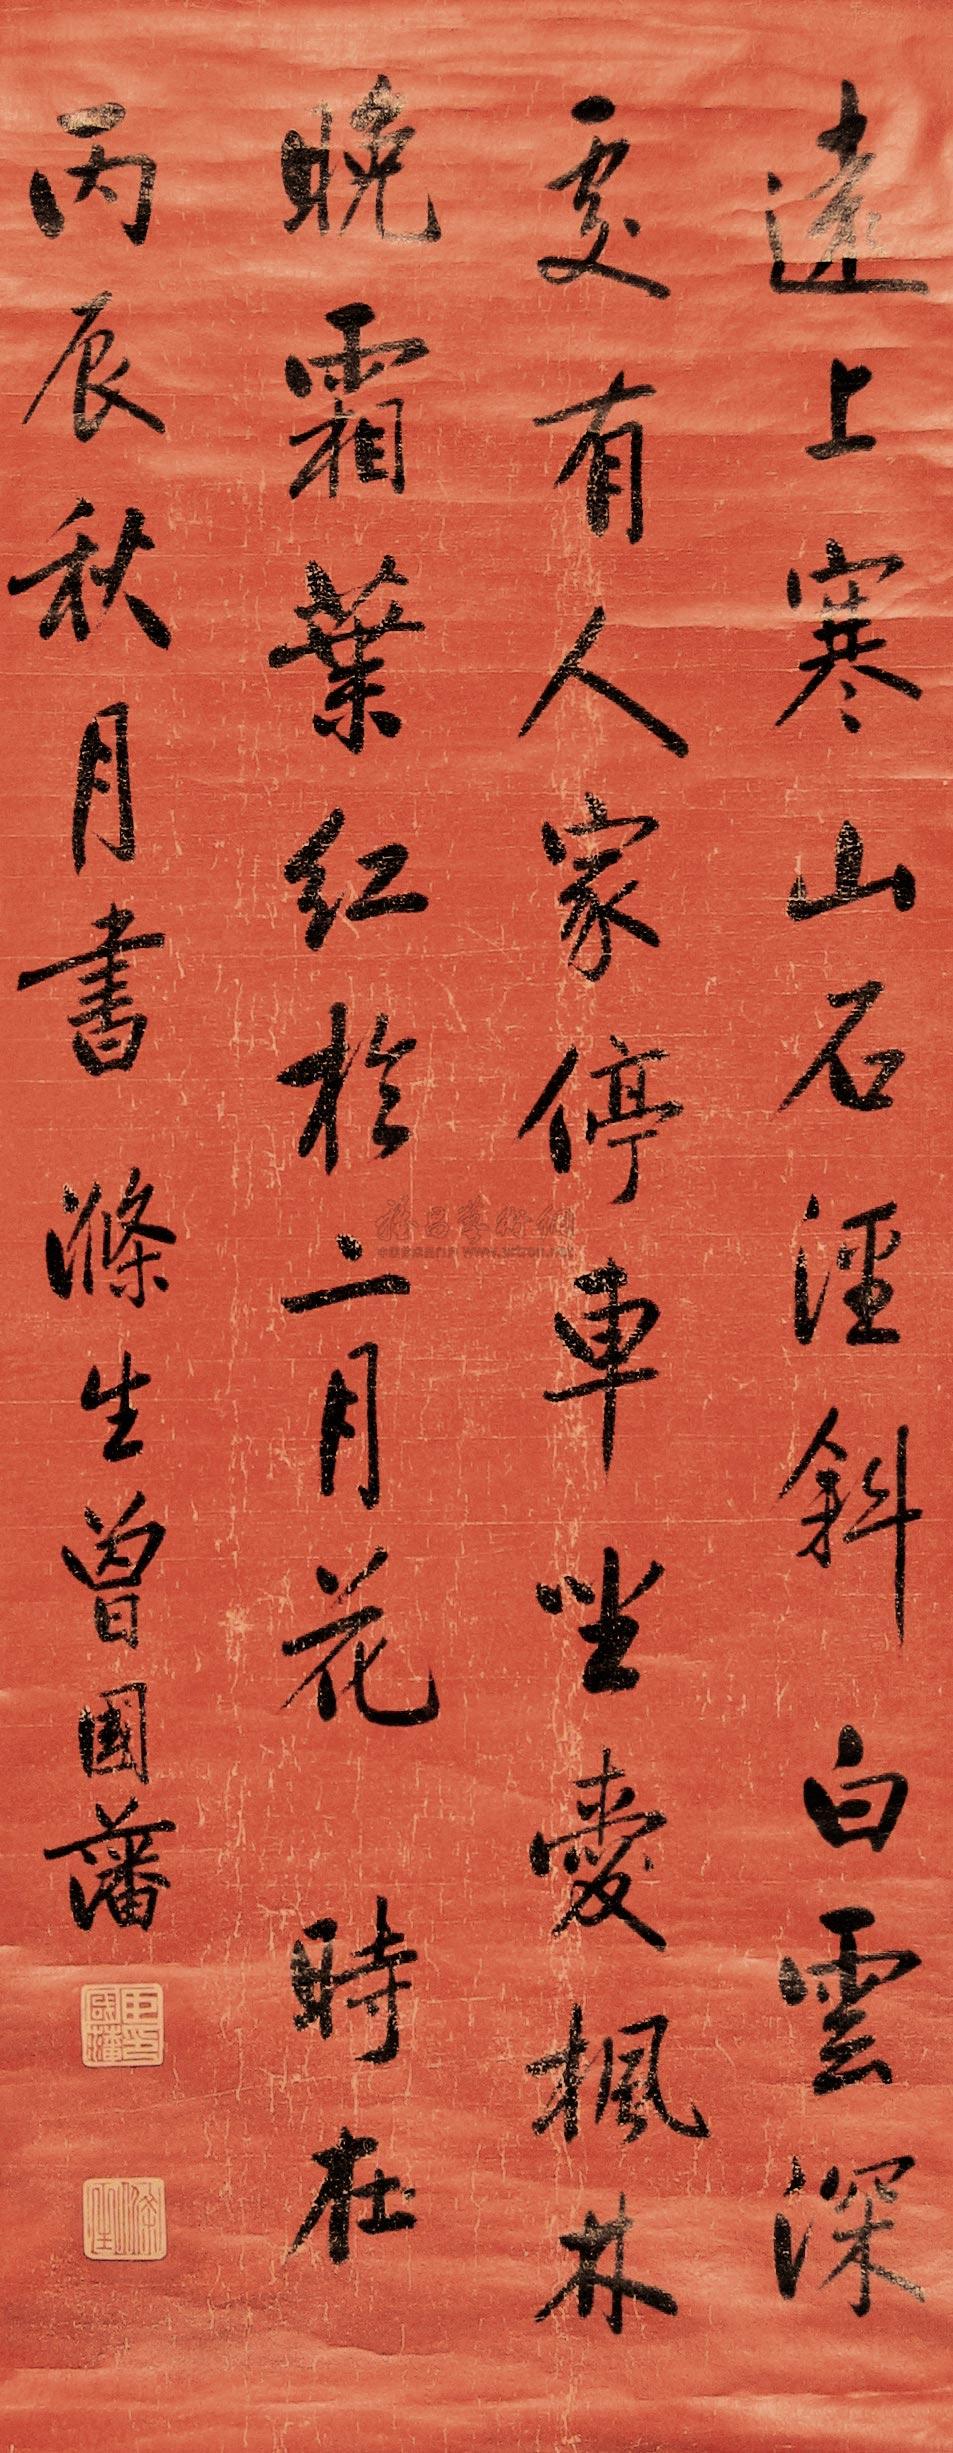 遠上寒山石徑斜白雲深
處有人家停車坐愛楓林
晚霜葉紅於二月花時在
丙辰秋月書滌生曾國藩
臣印國藩
滌生